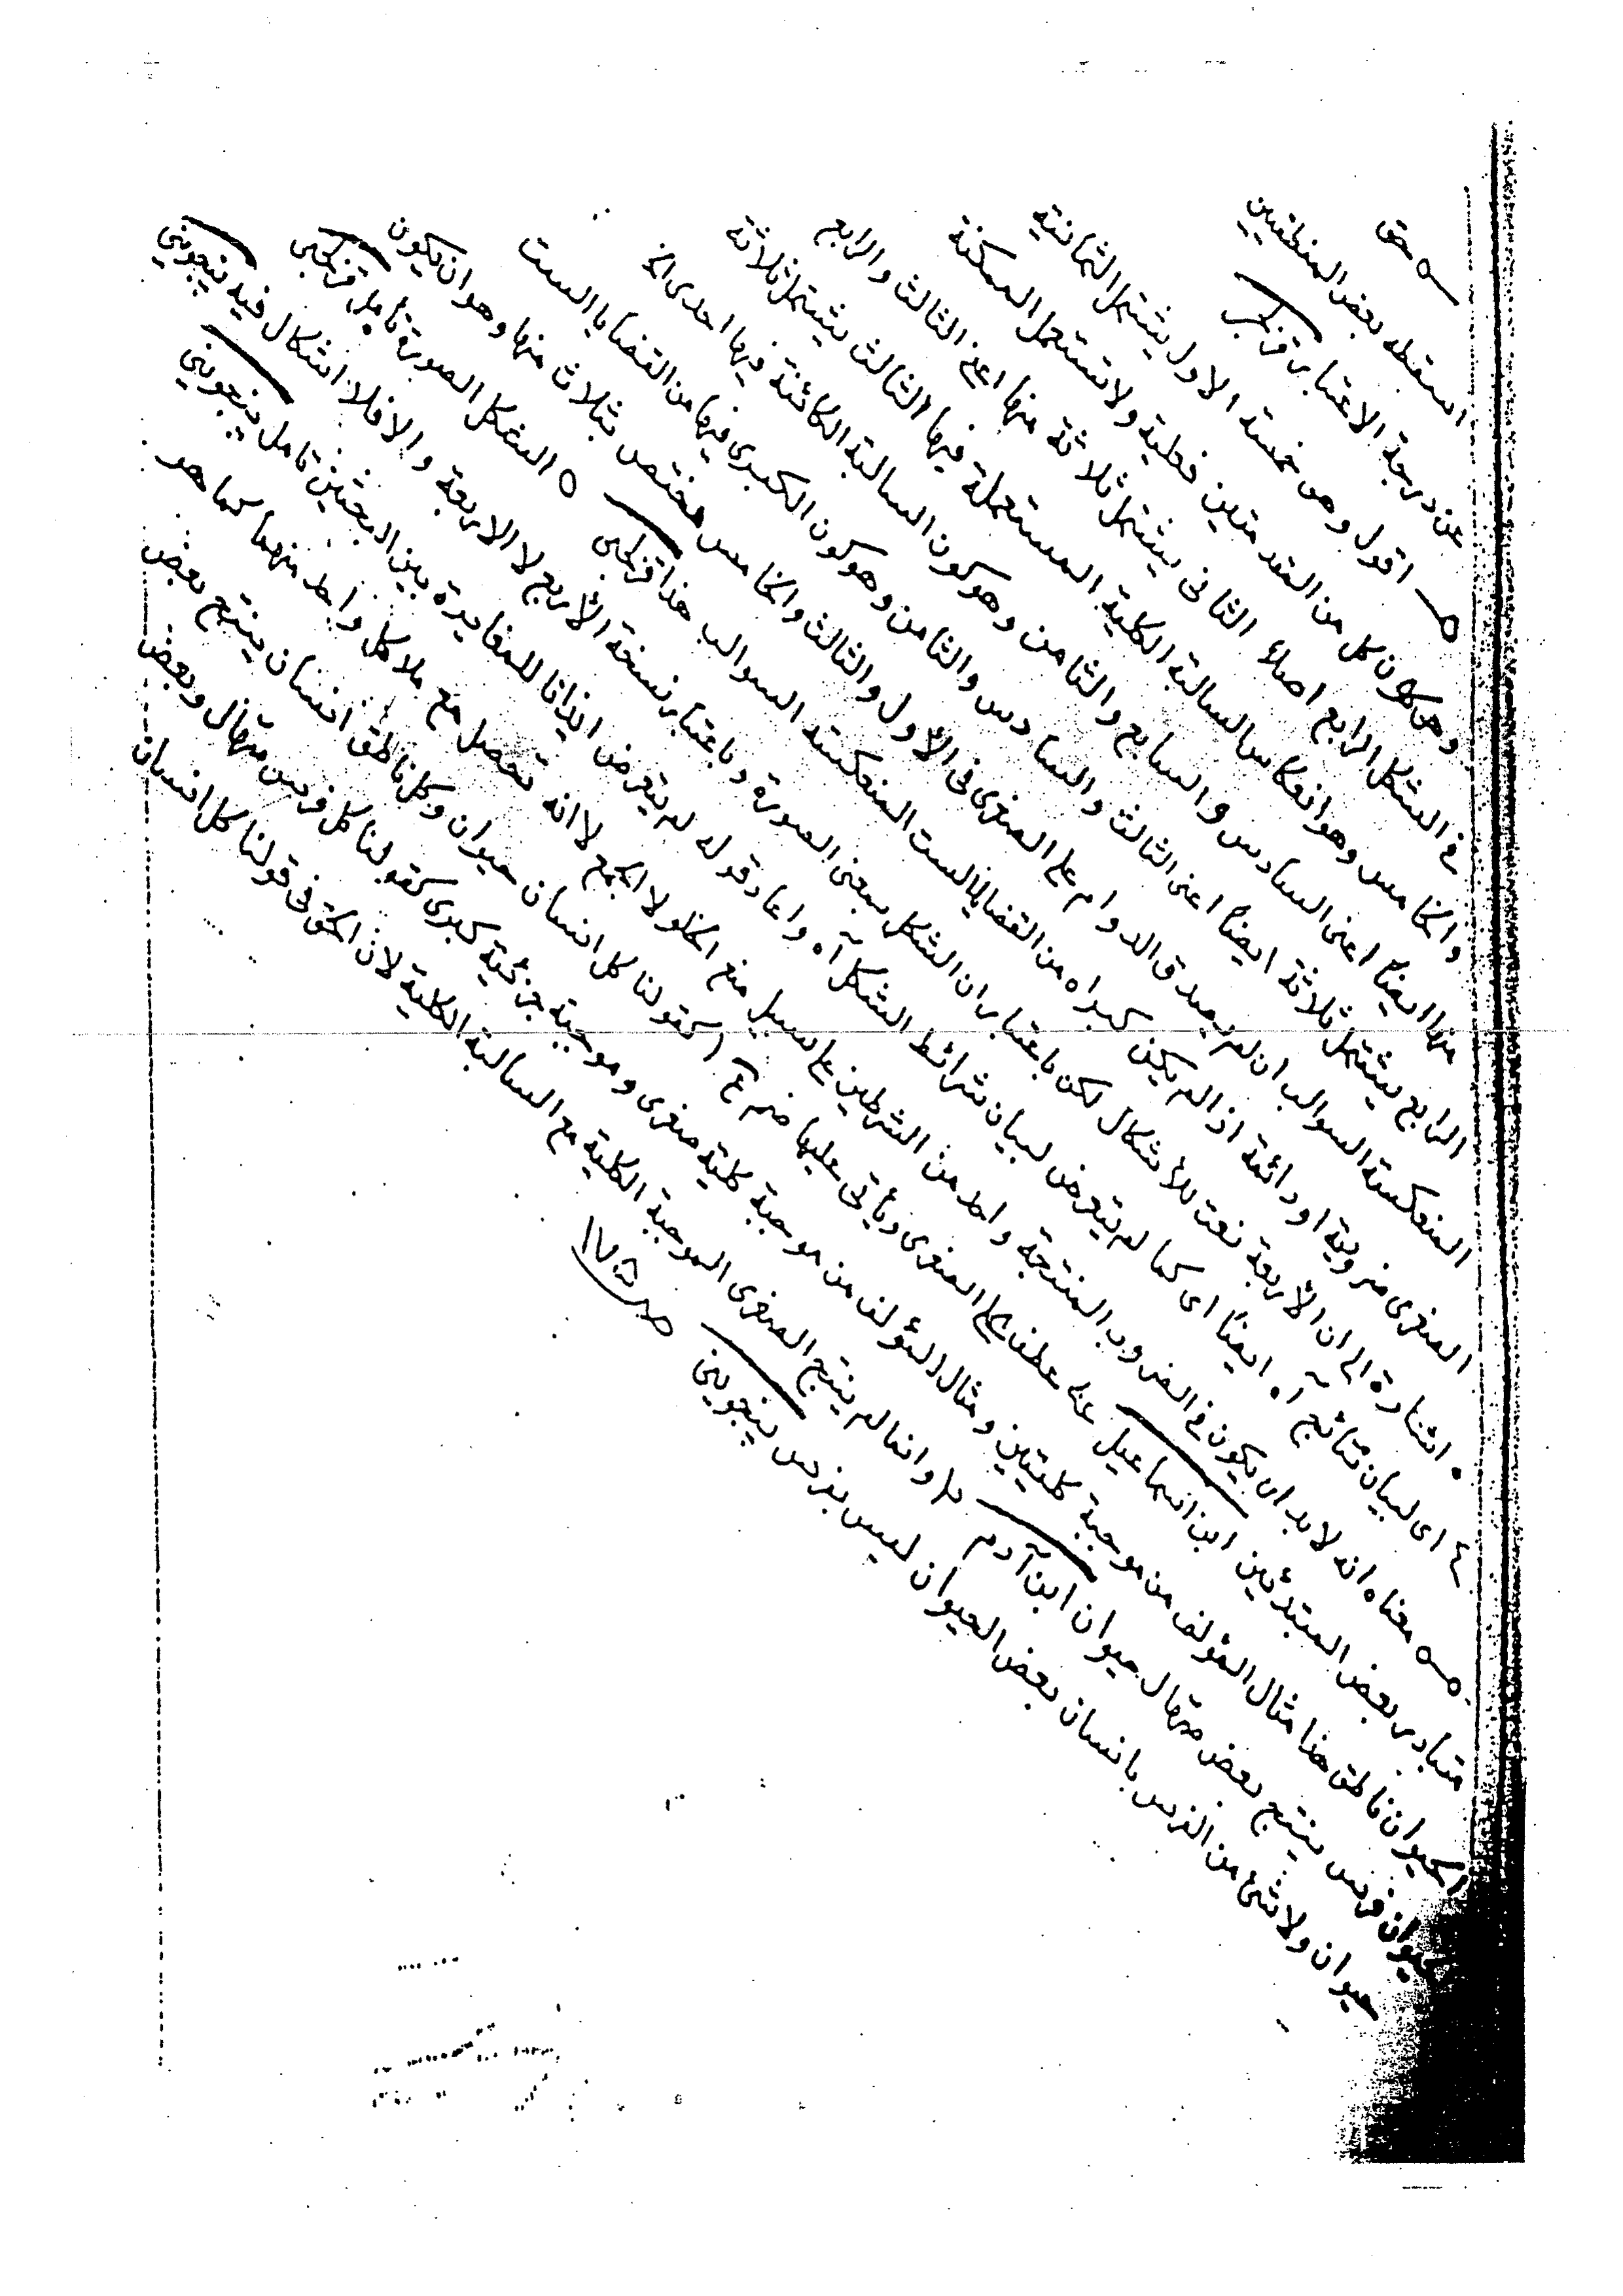 حتى
اسقطه بعض المنطقيين
عن درجة الاعتبار قزلجى
اقول وهى خمسة الاول يشتمل الثمانية
وهو كون كل من المقدمتين فعلية ولا تستعمل الممكنة
فى الشكل الرابع اصلاً الثانى يشتمل ثلاثة منها اعنى الثالث والرابع
والخامس وهو انعكاس السالبة الكلية المستعملة فيها الثالث يشتمل ثلاثة
منها ايضاً اعنى السادس والسابع والثامن وهو كون السالبة الكائنة فيها احدى الخ
الرابع يشتمل ثلاثة ايضاً اعنى الثالث والسادس والثامن وهو كون الكبرى فيها من القضايا الست
المنعكسة السوالب ان لم يصدق الدوام على الصغرى فى الأول والثالث والخامس مختص بثلاث منها وهو ان يكون
الصغرى ضرورية او دائمة اذا لم يكن كبراه من القضايا الست المنعكسة السوالب هذا قزلجى ٥ الشكل الصورة تأمل قزلجى
اشارة الى ان الأربعة نعت للأشكال لكن باعتبار ان الشكل بمعنى الصورة وباعتبار نسخة الأربع لا الاربعة والا فلا اشكال فيه پنجوينى
٤ اى لبيان نتائج آه ايضاً اى كما لم يتعرض لبيان شرائط الشكل آه واعاد قوله لم يتعرض ايذانا للمغايرة بين البحثين تامل پنجوينى
معناه انه لابد ان يكون فى الضروب المنتجة واحد من الشرطين على سبيل منع الخلو لا الجمع لا انه تحصل مع ملا كل واحد منهما كما هو
متبادر بعض المبتدئين ابن اسماعيل عطف على الصغرى ويأتى عليها كقولنا كل انسان حيوان وكل ناطق انسان ينتج بعض
الحيوان ناطق هذا مثال المؤلف من موجبة كليتين ومثال المؤلف من موجبة كلية صغرى وموجبة جزئية كبرى كقولنا كل فرس صهال وبعض
حيوان فرس ينتج بعض صهال حيوان ابن آدم وانما لم ينتج الصغرى الموجبة الكلية مع السالبة الكلية لان الحق فى قولنا كل انسان
حيوان ولا شئ من الفرس بانسان بعض الحيوان ليس بفرس پنجوينى ص ١٧٥